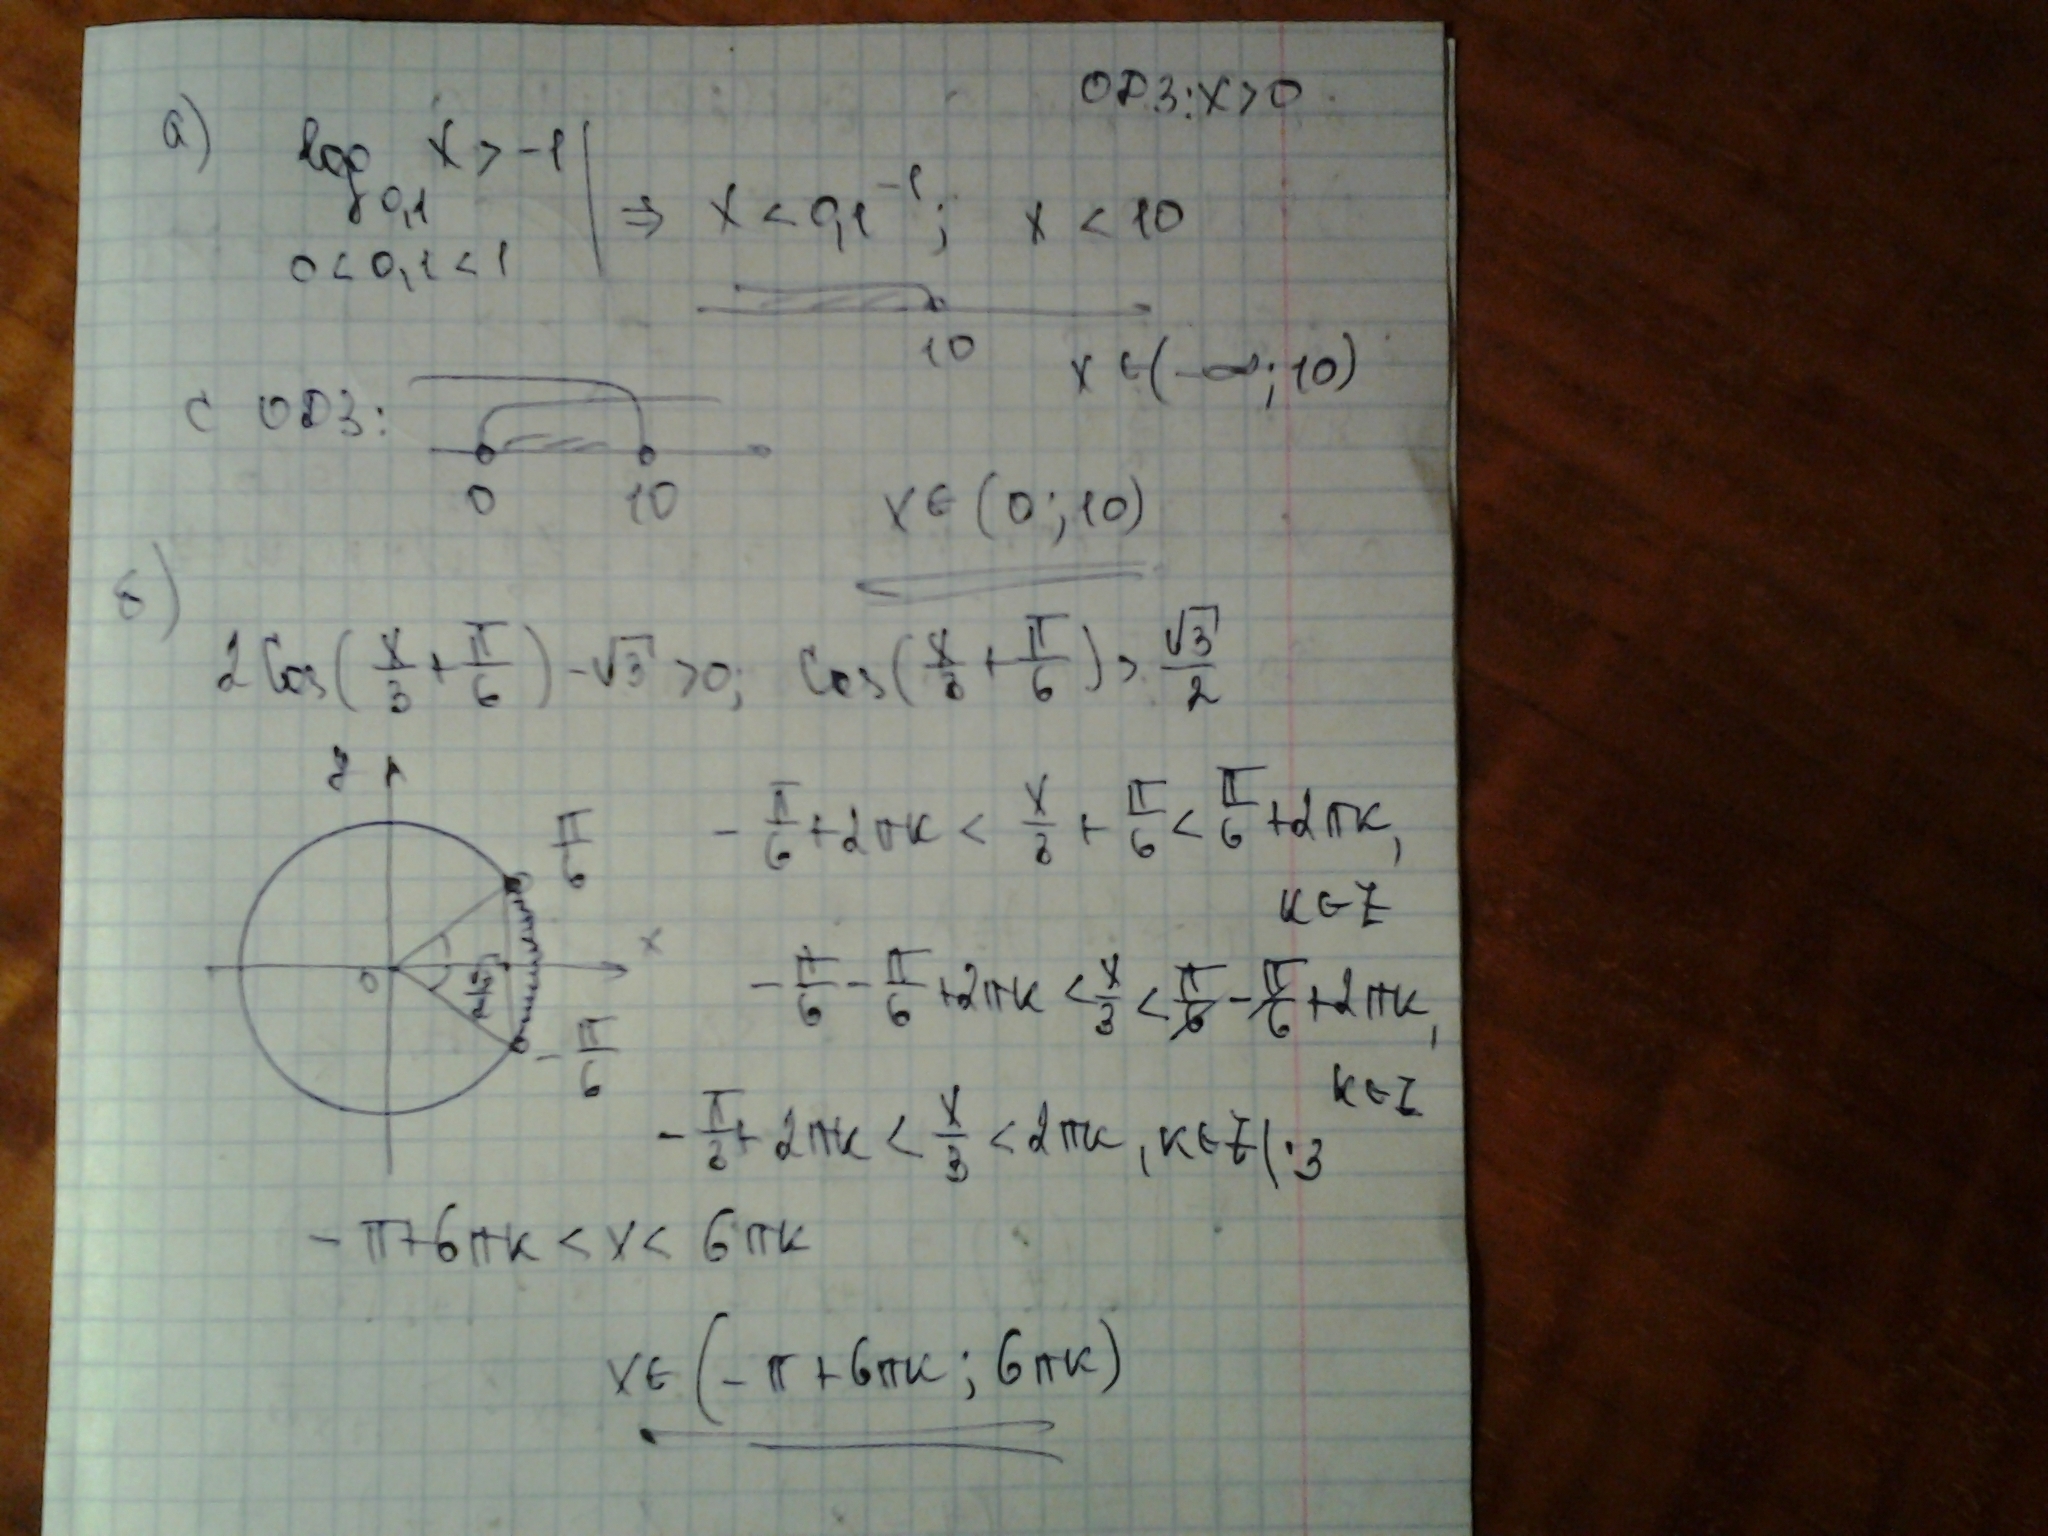 ОДЗ: x>0
а) log₀,₁ x > -1
0 < 0,1 < 1 ⇒ x < 0,1⁻¹; x < 10
10
x ∈ (-∞; 10)
С ОДЗ:
0 10
x ∈ (0; 10)
б)
2 Cos(x/3 + π/6) - √3 > 0; Cos(x/3 + π/6) > √3/2
y
π/6
-π/6 + 2πк < x/3 + π/6 < π/6 + 2πк,
к ∈ Z
x
0
√3/2
-π/6 - π/6 + 2πк < x/3 < π/6 - π/6 + 2πк,
к ∈ Z
-π/6
-π/3 + 2πк < x/3 < 2πк, к ∈ Z |·3
-π + 6πк < x < 6πк
x ∈ (-π + 6πк; 6πк)